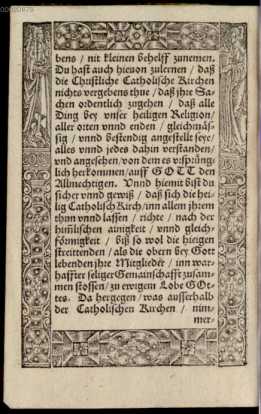 bens / nit kleinen behelff zunemen.
Du hast auch hieuon zulernen / daß
die Christliche Catholische Kirchen
nichts vergebens thue / daß jhre Sa-
chen ordentlich zugehen / daß alle
Ding bey vnser heiligen Religion/
aller orten vnnd enden / gleichmäs-
sig / vnnd bestendig angestelt seye/
alles vnnd jedes dahin verstanden/
vnd angesehen/von dem es vrsprüng-
lich herkommen/auff GOTT den
Allmechtigen. Vnnd hiemit bist du
sicher vnnd gewiß / daß sich die hei-
lig Catholisch Kirch/inn allem jhrem
thun vnnd lassen / richte / nach der
himlischen ainigkeit / vnnd gleich-
förmigkeit / biß so wol die hieigen
streittenden / als die obern bey Gott
lebenden jhre Mitglieder / inn war-
haffter seliger Gemainschafft zusam-
men stossen/zu ewigem Lobe GOt-
tes. Da hergegen / was ausserhalb
der Catholischen Kirchen / nim-
mer-